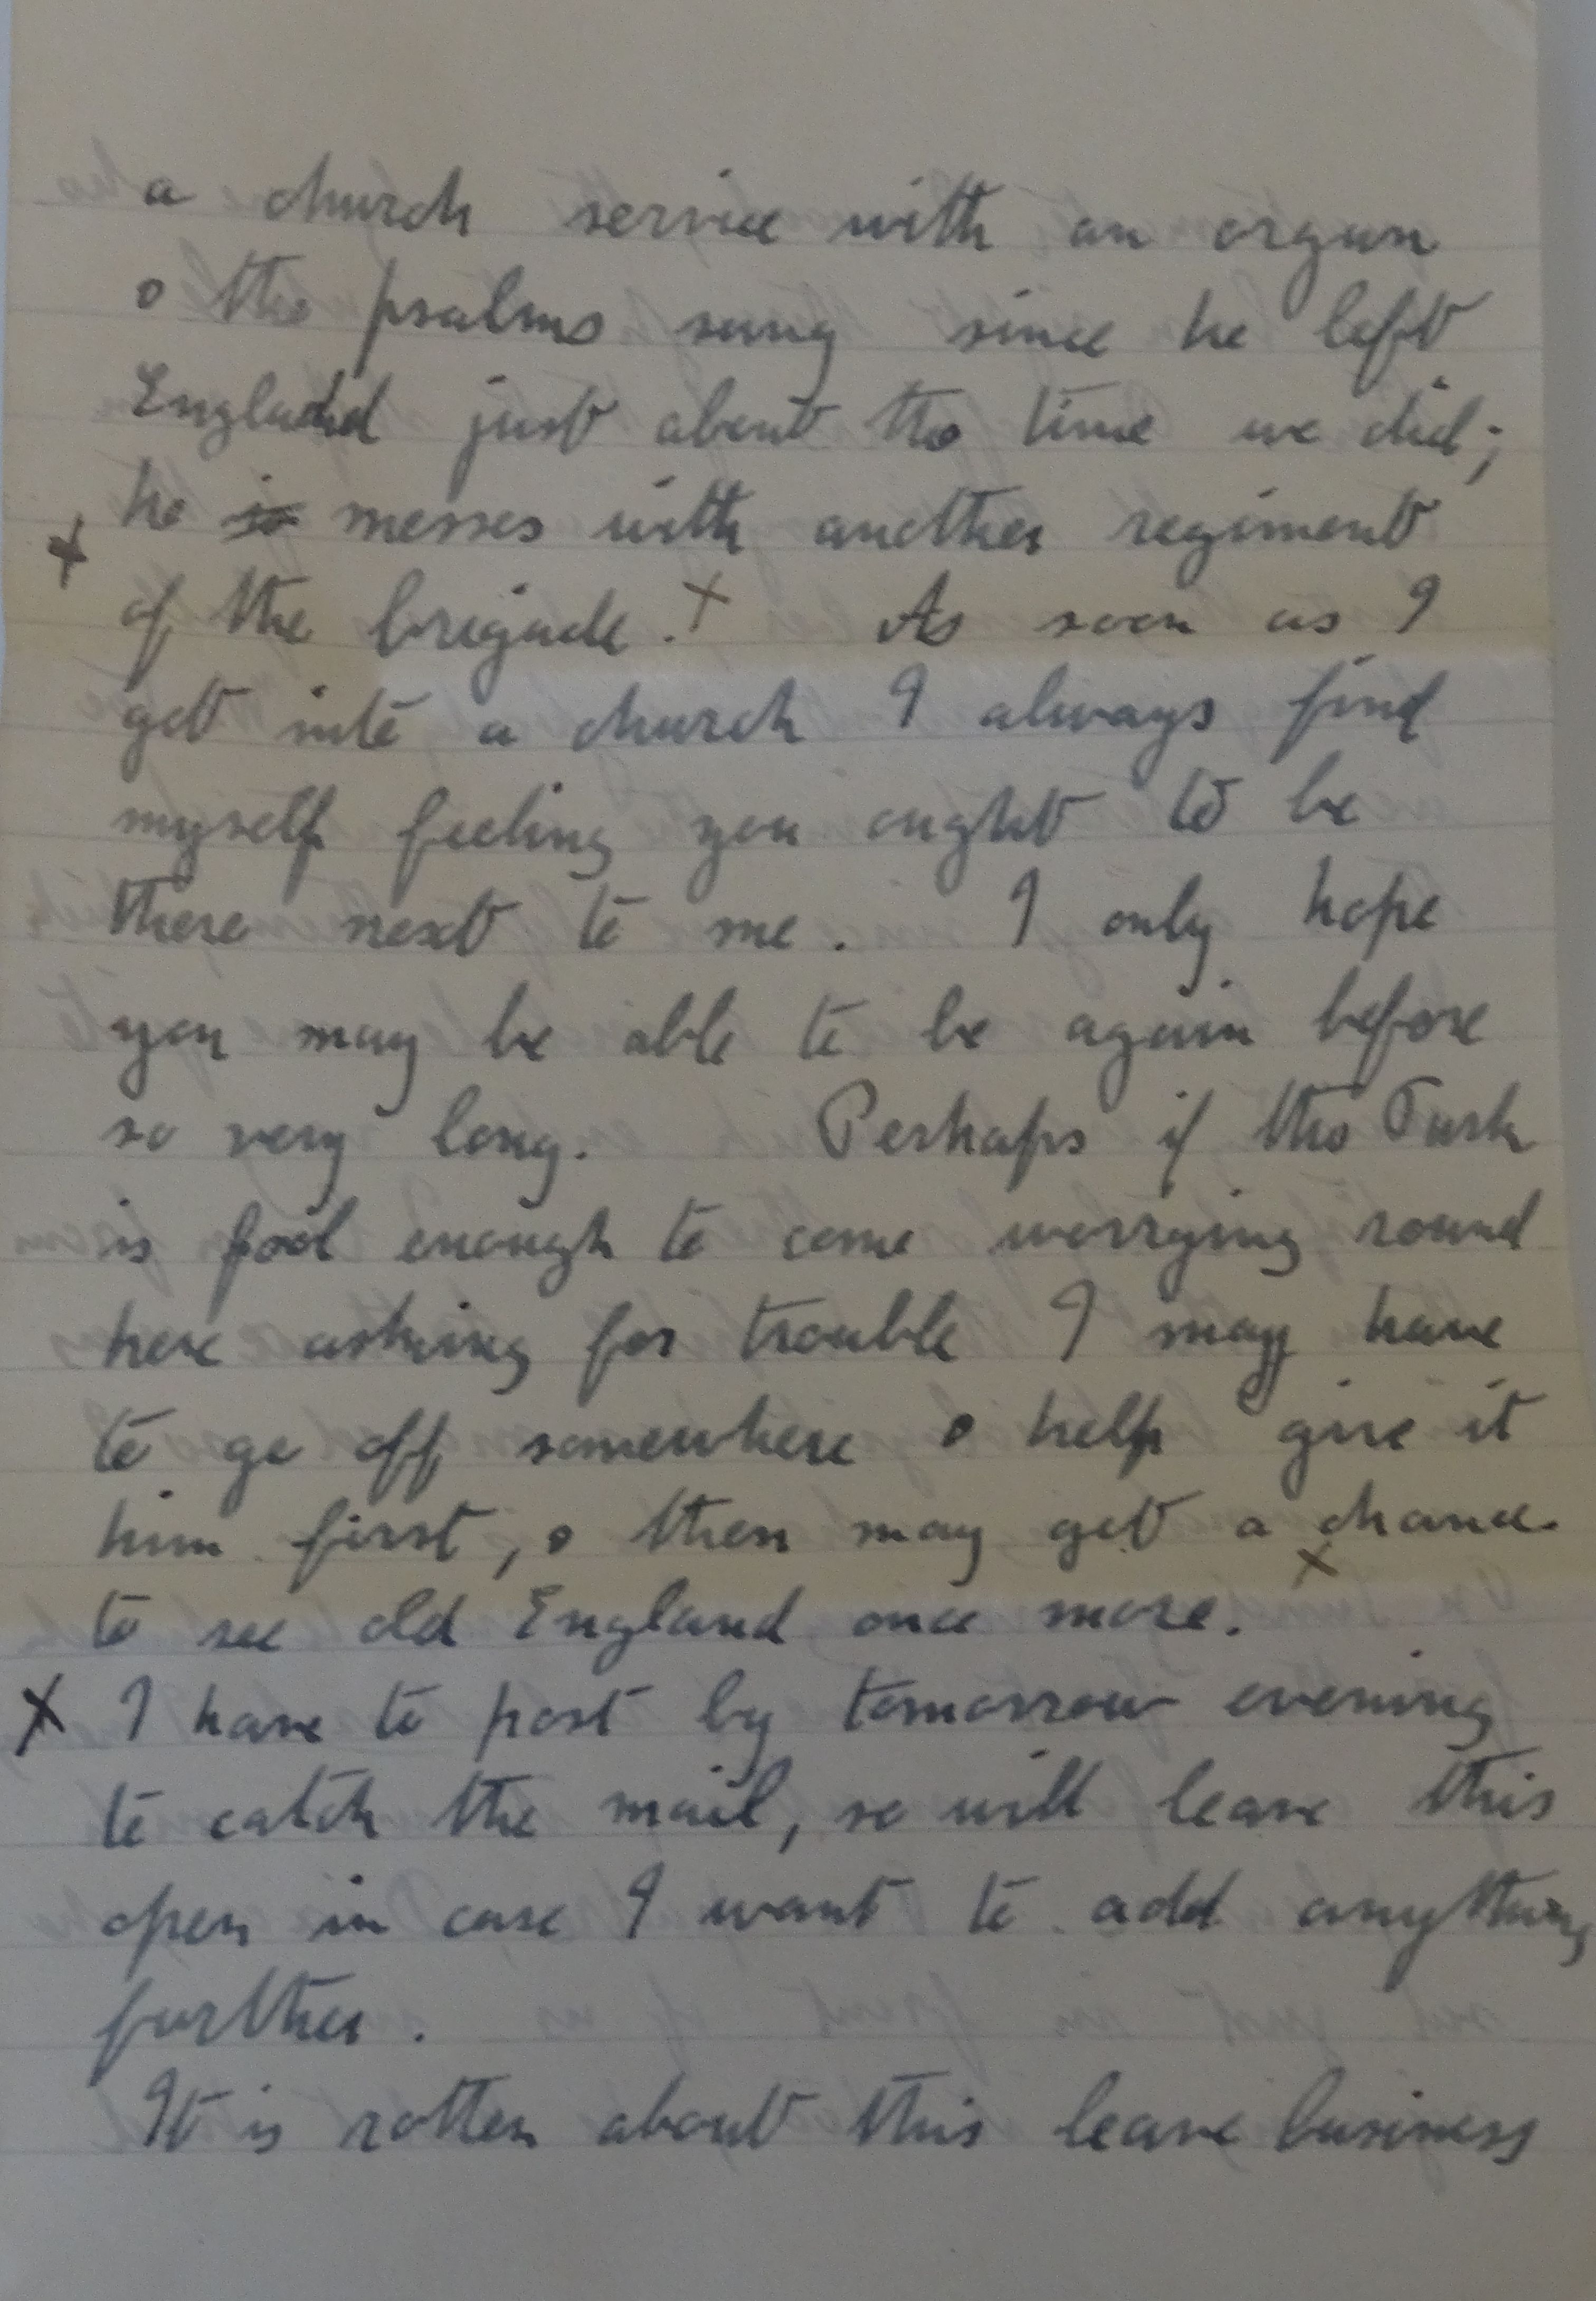 a church service with an organ
& the psalms sung since he left
England just about the time we did;
x he is messes with another regiment
of the brigade. x As soon as I
get into a church I always find
myself feeling you ought to be
there next to me. I only hope
you may be able to be again before
so very long. Perhaps if the Turk
is fool enough to come worrying round
here asking for trouble I may have
to go off somewhere & help give it
him first, & then may get a chance
x
to see old England once more.
x I have to post by tomorrow evening
to catch the mail, so will leave this
open in case I want to add anything
further.
It is rotten about this leave business